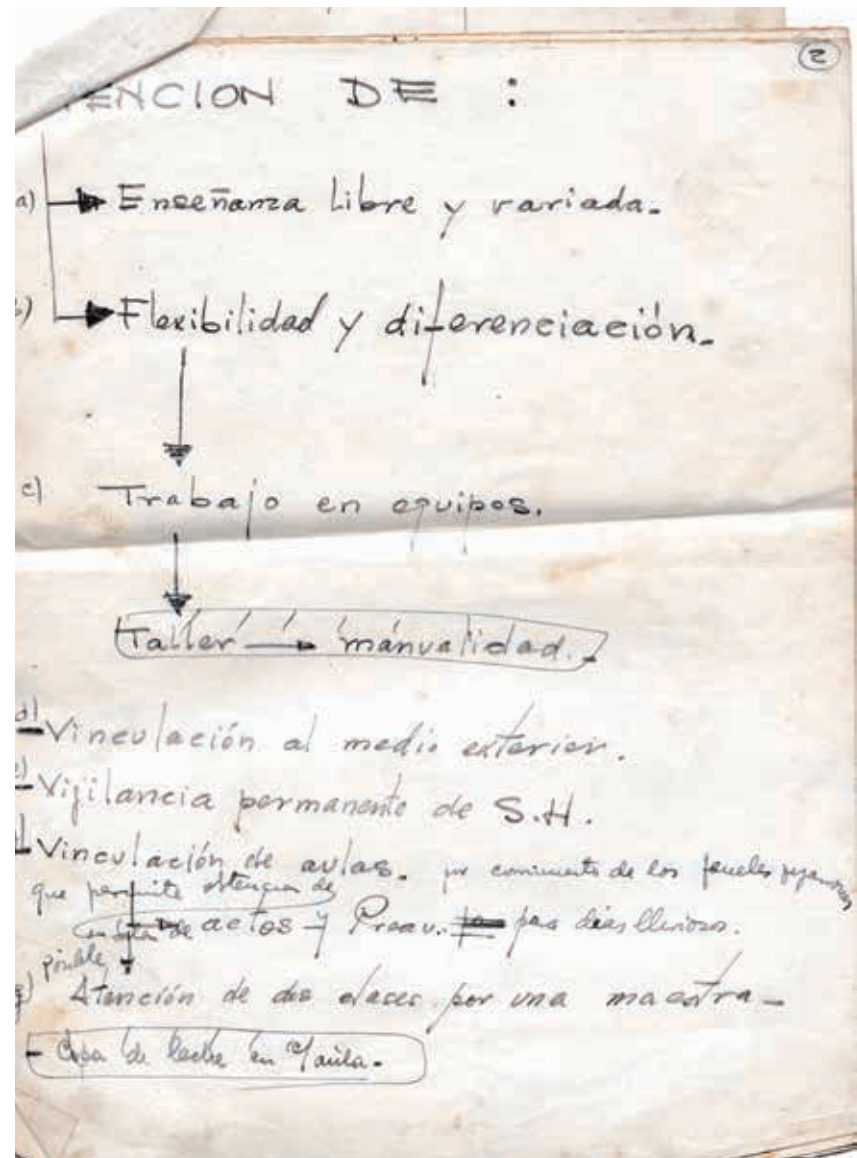 ②
ENCION DE :
a) Enseñanza libre y variada.
b) Flexibilidad y diferenciación.
c) Trabajo en equipos.
Taller → manualidad.-
d) Vinculación al medio exterior.
e) Vigilancia permanente de S.H.
Vinculación de aulas. por corrimiento de los paneles
que permite obtención de
actos y Preau. para días lluviosos.
posible
g) Atención de dos clases por una maestra -
- Copa de leche en c/aula.-